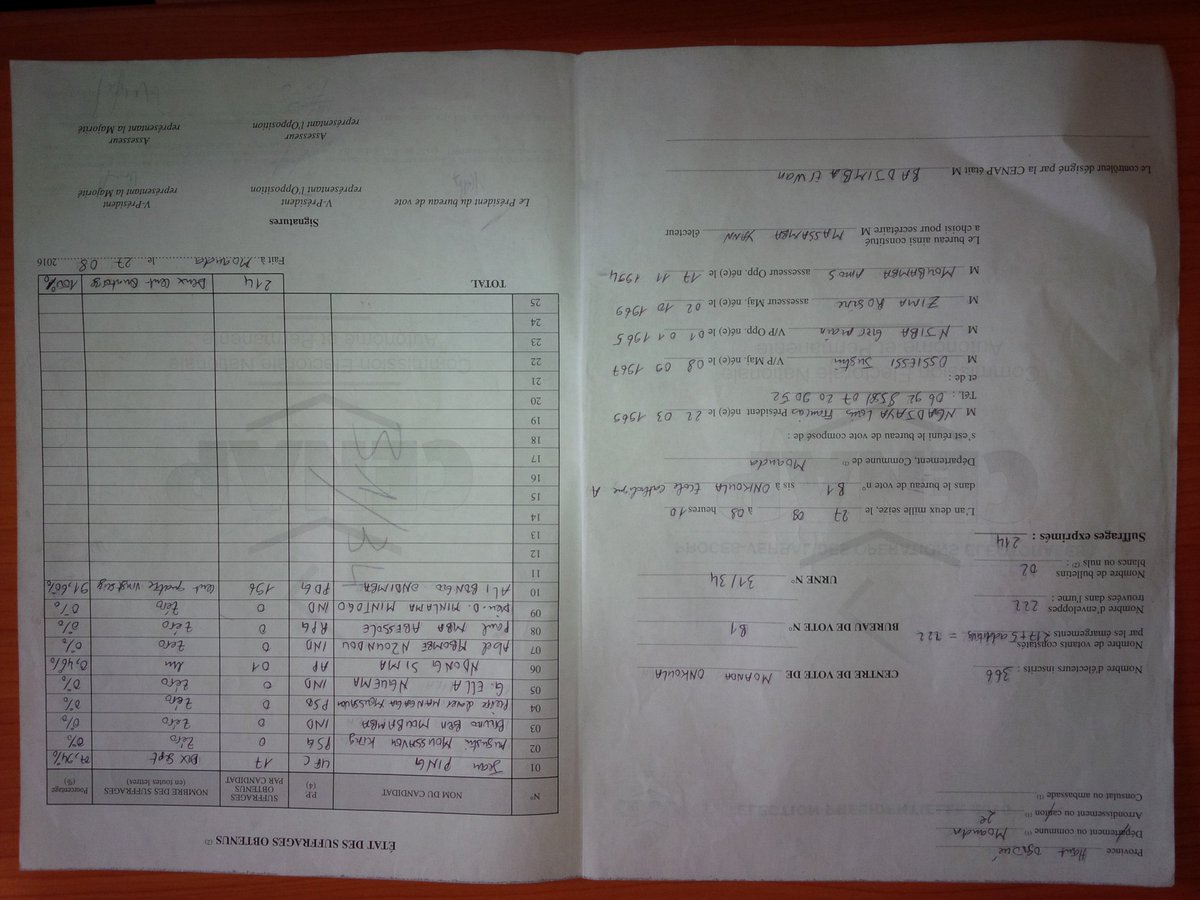 Province Haut Ogooué
Département ou commune (1) Moanda
Arrondissement ou canton (1) 2e
Consulat ou ambassade (1)
Nombre d'électeurs inscrits : 368
CENTRE DE VOTE DE MOANDA ONKOULA
Nombre de votants constatés
par les émargements 217+5 additifs = 222
BUREAU DE VOTE N° B1
Nombre d'enveloppes
trouvées dans l'urne : 222
URNE N° 31/34
Nombre de bulletins
blancs ou nuls (2) : 02
Suffrages exprimés : 214
L'an deux mille seize, le 27 08 à 08 heures 10
dans le bureau de vote n° B1 sis à ONKOULA École catholique A
Département, Commune de (3) Moanda
s'est réuni le bureau de vote composé de :
M NGADJAYA Louis Président né(e) le 22 03 1969
Tél. : 06 92 8581 07 20 90 52
et de :
M OSSIESSI Justin V/P Maj, né(e) le 08 09 1967
M NJIBA Germain V/P Opp. né(e) le 01 01 1965
M ZIMA Rosine assesseur Maj, né(e) le 02 10 1969
M MOUBAMBA Amos assesseur Opp, né(e) le 17 11 1994
Le bureau ainsi constitué
a choisi pour secrétaire M MASSAMBA YANN électeur
Le contrôleur désigné par la CENAP était M BADJIMBA Erwan
ÉTAT DES SUFFRAGES OBTENUS (2)
N° NOM DU CANDIDAT P.P (4) SUFFRAGES OBTENUS PAR CANDIDAT NOMBRE DES SUFFRAGES (en toutes lettres) Pourcentage (%)
01 Jean PING UFC 17 DIX Sept 7,94%
02 Augustin MOUSSAVOU KING PSG 0 Zéro 0%
03 Bruno BEN MOUBAMBA IND 0 Zéro 0%
04 Pierre MANGANGA MOUSSAVOU PSD 0 Zéro 0%
05 G. ELLA NGUEMA IND 0 Zéro 0%
06 NDONG SIMA AP 01 Un 0,46%
07 Abel MBOMBE NZOUNDOU IND 0 Zéro 0%
08 Paul MBA ABESSOLE RPG 0 Zéro 0%
09 Dieu. D. MINLAMA MINTOGO IND 0 Zéro 0%
10 ALI BONGO ONDIMBA PDG 196 Cent quatre vingt seize 91,60%
11
12
13
14
15
16
17
18
19
20
21
22
23
24
25
31/34
TOTAL 214 Deux Cent Quatorze 100%
Fait à Moanda le 27 08 2016
Signatures
Le Président du bureau de vote
V-Président
représentant l'Opposition
V-Président
représentant la Majorité
Assesseur
représentant l'Opposition
Assesseur
représentant la Majorité